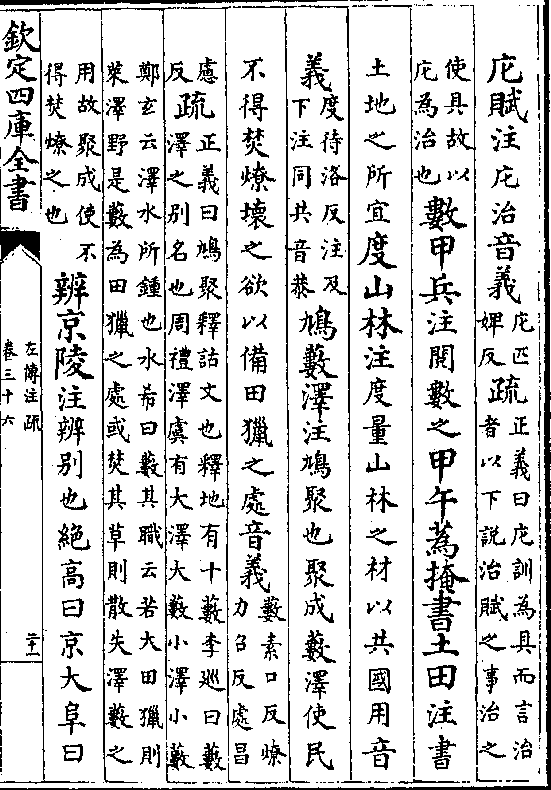 庀賦注庀治音義庀匹婢反疏正義曰庀訓為具而言治者以下説治賦之事治之
使具故以庀為治也數甲兵注閱數之甲午蒍掩書土田注書
土地之所宜度山林注度量山林之材以共國用音
義度待洛反注及下注同共音恭鳩藪澤注鳩聚也聚成藪澤使民
不得焚燎壞之欲以備田獵之處音義藪素口反燎力召反處昌
慮反疏正義曰鳩聚釋詁文也釋地有十藪李巡曰藪澤之别名也周禮澤虞有大澤大藪小澤小藪
鄭玄云澤水所鍾也水希曰藪其職云若大田獵則萊澤野是藪為田獵之處或焚其草則散失澤藪之
用故聚成使不得焚燎之也辨京陵注辨别也絶高曰京大阜曰
欽定四庫全書
左傳注疏
卷三十六
二十一